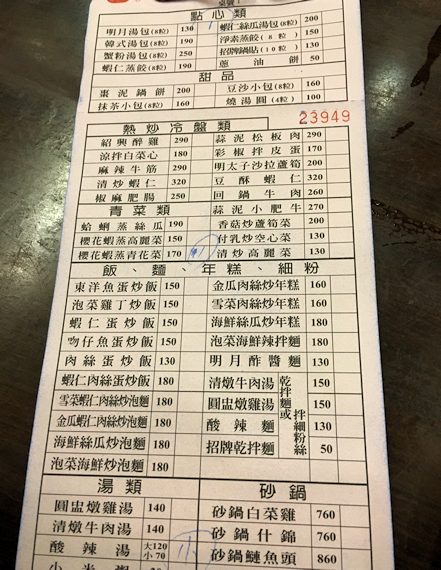 點心類
明月湯包(8粒) 130 蝦仁絲瓜湯包(8粒) 200
韓式湯包(8粒) 190 淨素蒸餃(8粒) 150
蟹粉湯包(8粒) 250 招牌鍋貼(10粒) 130
蝦仁蒸餃(8粒) 190 蔥油餅 50
甜品
棗泥鍋餅 200 豆沙小包(8粒) 160
抹茶小包(8粒) 160 燒湯圓(4粒) 100
23949
熱炒冷盤類
紹興醉雞 290 蒜泥松板肉 290
涼拌白菜心 180 彩椒拌皮蛋 170
麻辣牛筋 290 明太子沙拉蘆筍 200
清炒蝦仁 320 豆酥蝦仁 320
椒麻肥腸 250 回鍋牛肉 260
青菜類 蒜泥小肥牛 270
蛤蜊蒸絲瓜 190 香菇炒蘆筍菜 200
櫻花蝦蒸高麗菜 150 付乳炒空心菜 130
櫻花蝦蒸青花菜 170 清炒高麗菜 130
飯、麵、年糕、細粉
東洋魚蛋炒飯 150 金瓜肉絲炒年糕 160
泡菜雞丁炒飯 150 雪菜肉絲炒年糕 160
蝦仁蛋炒飯 150 海鮮絲瓜炒年糕 180
吻仔魚蛋炒飯 150 泡菜海鮮辣拌麵 180
肉絲蛋炒飯 130 明月酢醬麵 130
蝦仁肉絲蛋炒飯 180 清燉牛肉湯 乾拌麵或拌細粉絲 150
雪菜蝦仁肉絲炒泡麵 180 圓盅燉雞湯 150
金瓜蝦仁肉絲炒泡麵 180 酸辣麵 130
海鮮絲瓜炒泡麵 180 招牌乾拌麵 50
泡菜海鮮炒泡麵 180
湯類 砂鍋
圓盅燉雞湯 140 砂鍋白菜雞 760
清燉牛肉湯 140 砂鍋什錦 760
酸辣湯 大120 小70 砂鍋鰱魚頭 860
小米粥